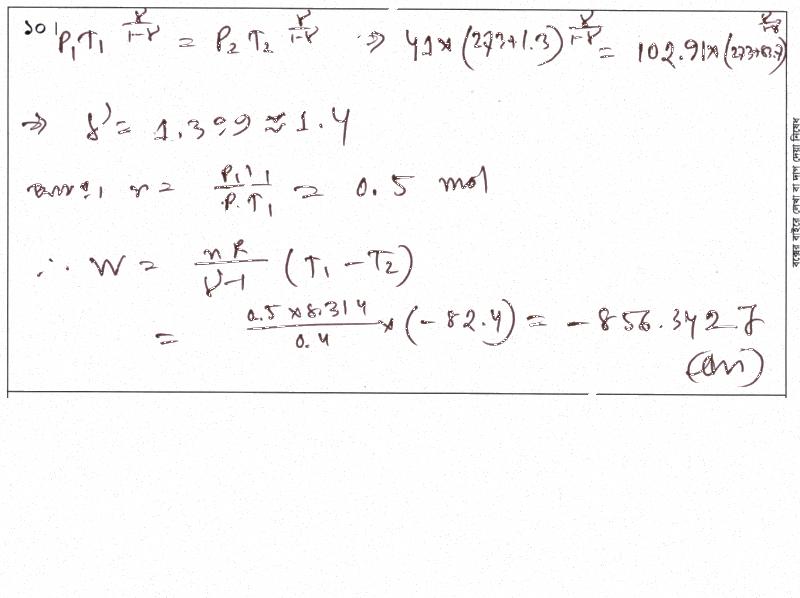 ১০। P₁T₁^(γ/(1-γ)) = P₂T₂^(γ/(1-γ)) ⇒ 41×(273+1.3)^(γ/(1-γ)) = 102.91×(273+83.7)^(γ/(1-γ))
⇒ γ = 1.399 ≈ 1.4
n = P₁V₁/(R T₁) = 0.5 mol
∴ W = nR/(γ-1) (T₁ - T₂)
= (0.5×8.314)/0.4 × (-82.4) = -856.342 J
(Ans)
বক্সের বাইরে লেখা বা দাগ দেয়া নিষেধ